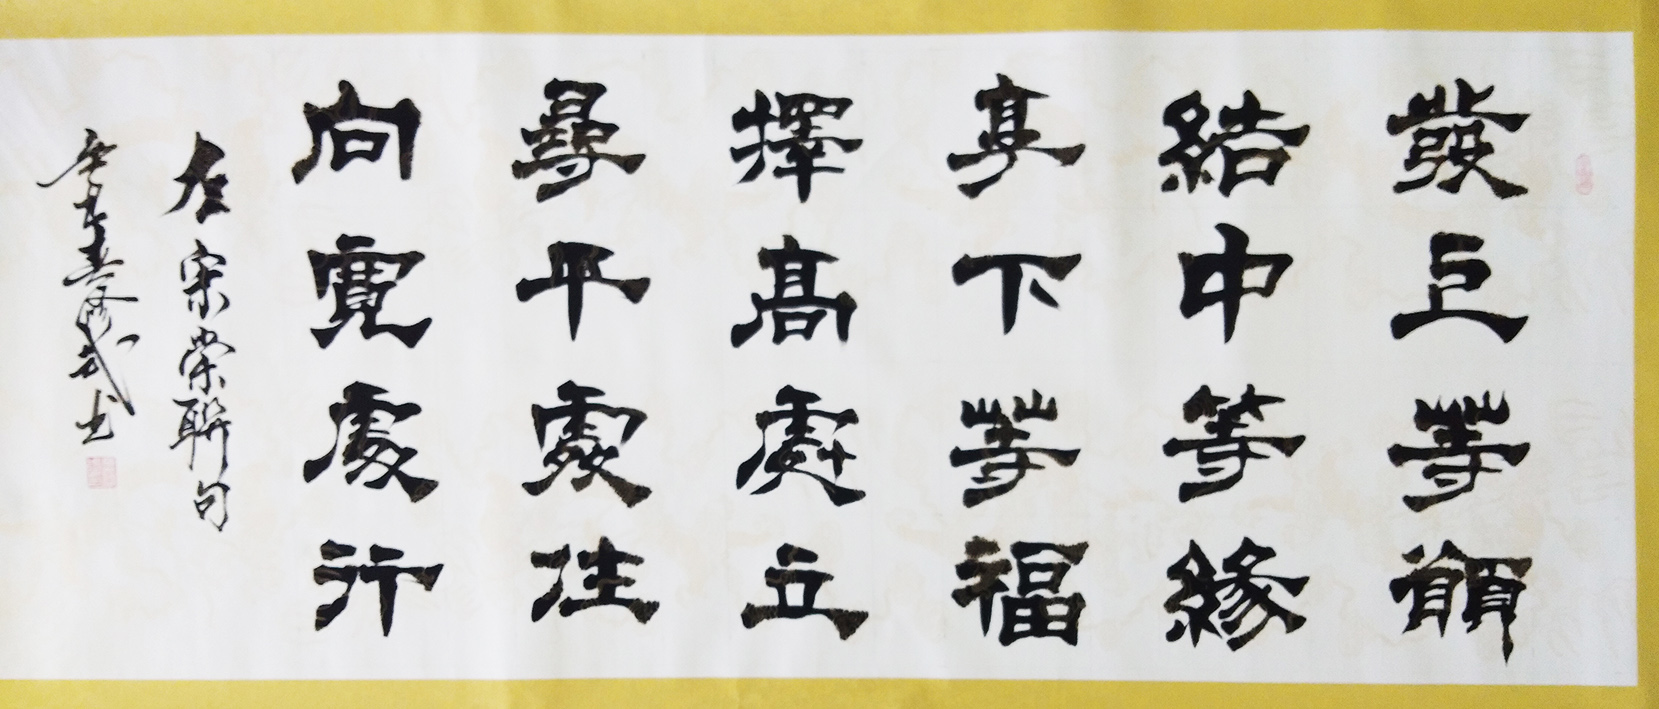 發上等願
結中等緣
享下等福
擇高處立
尋平處住
向寬處行
左宗棠聯句
辛丑春